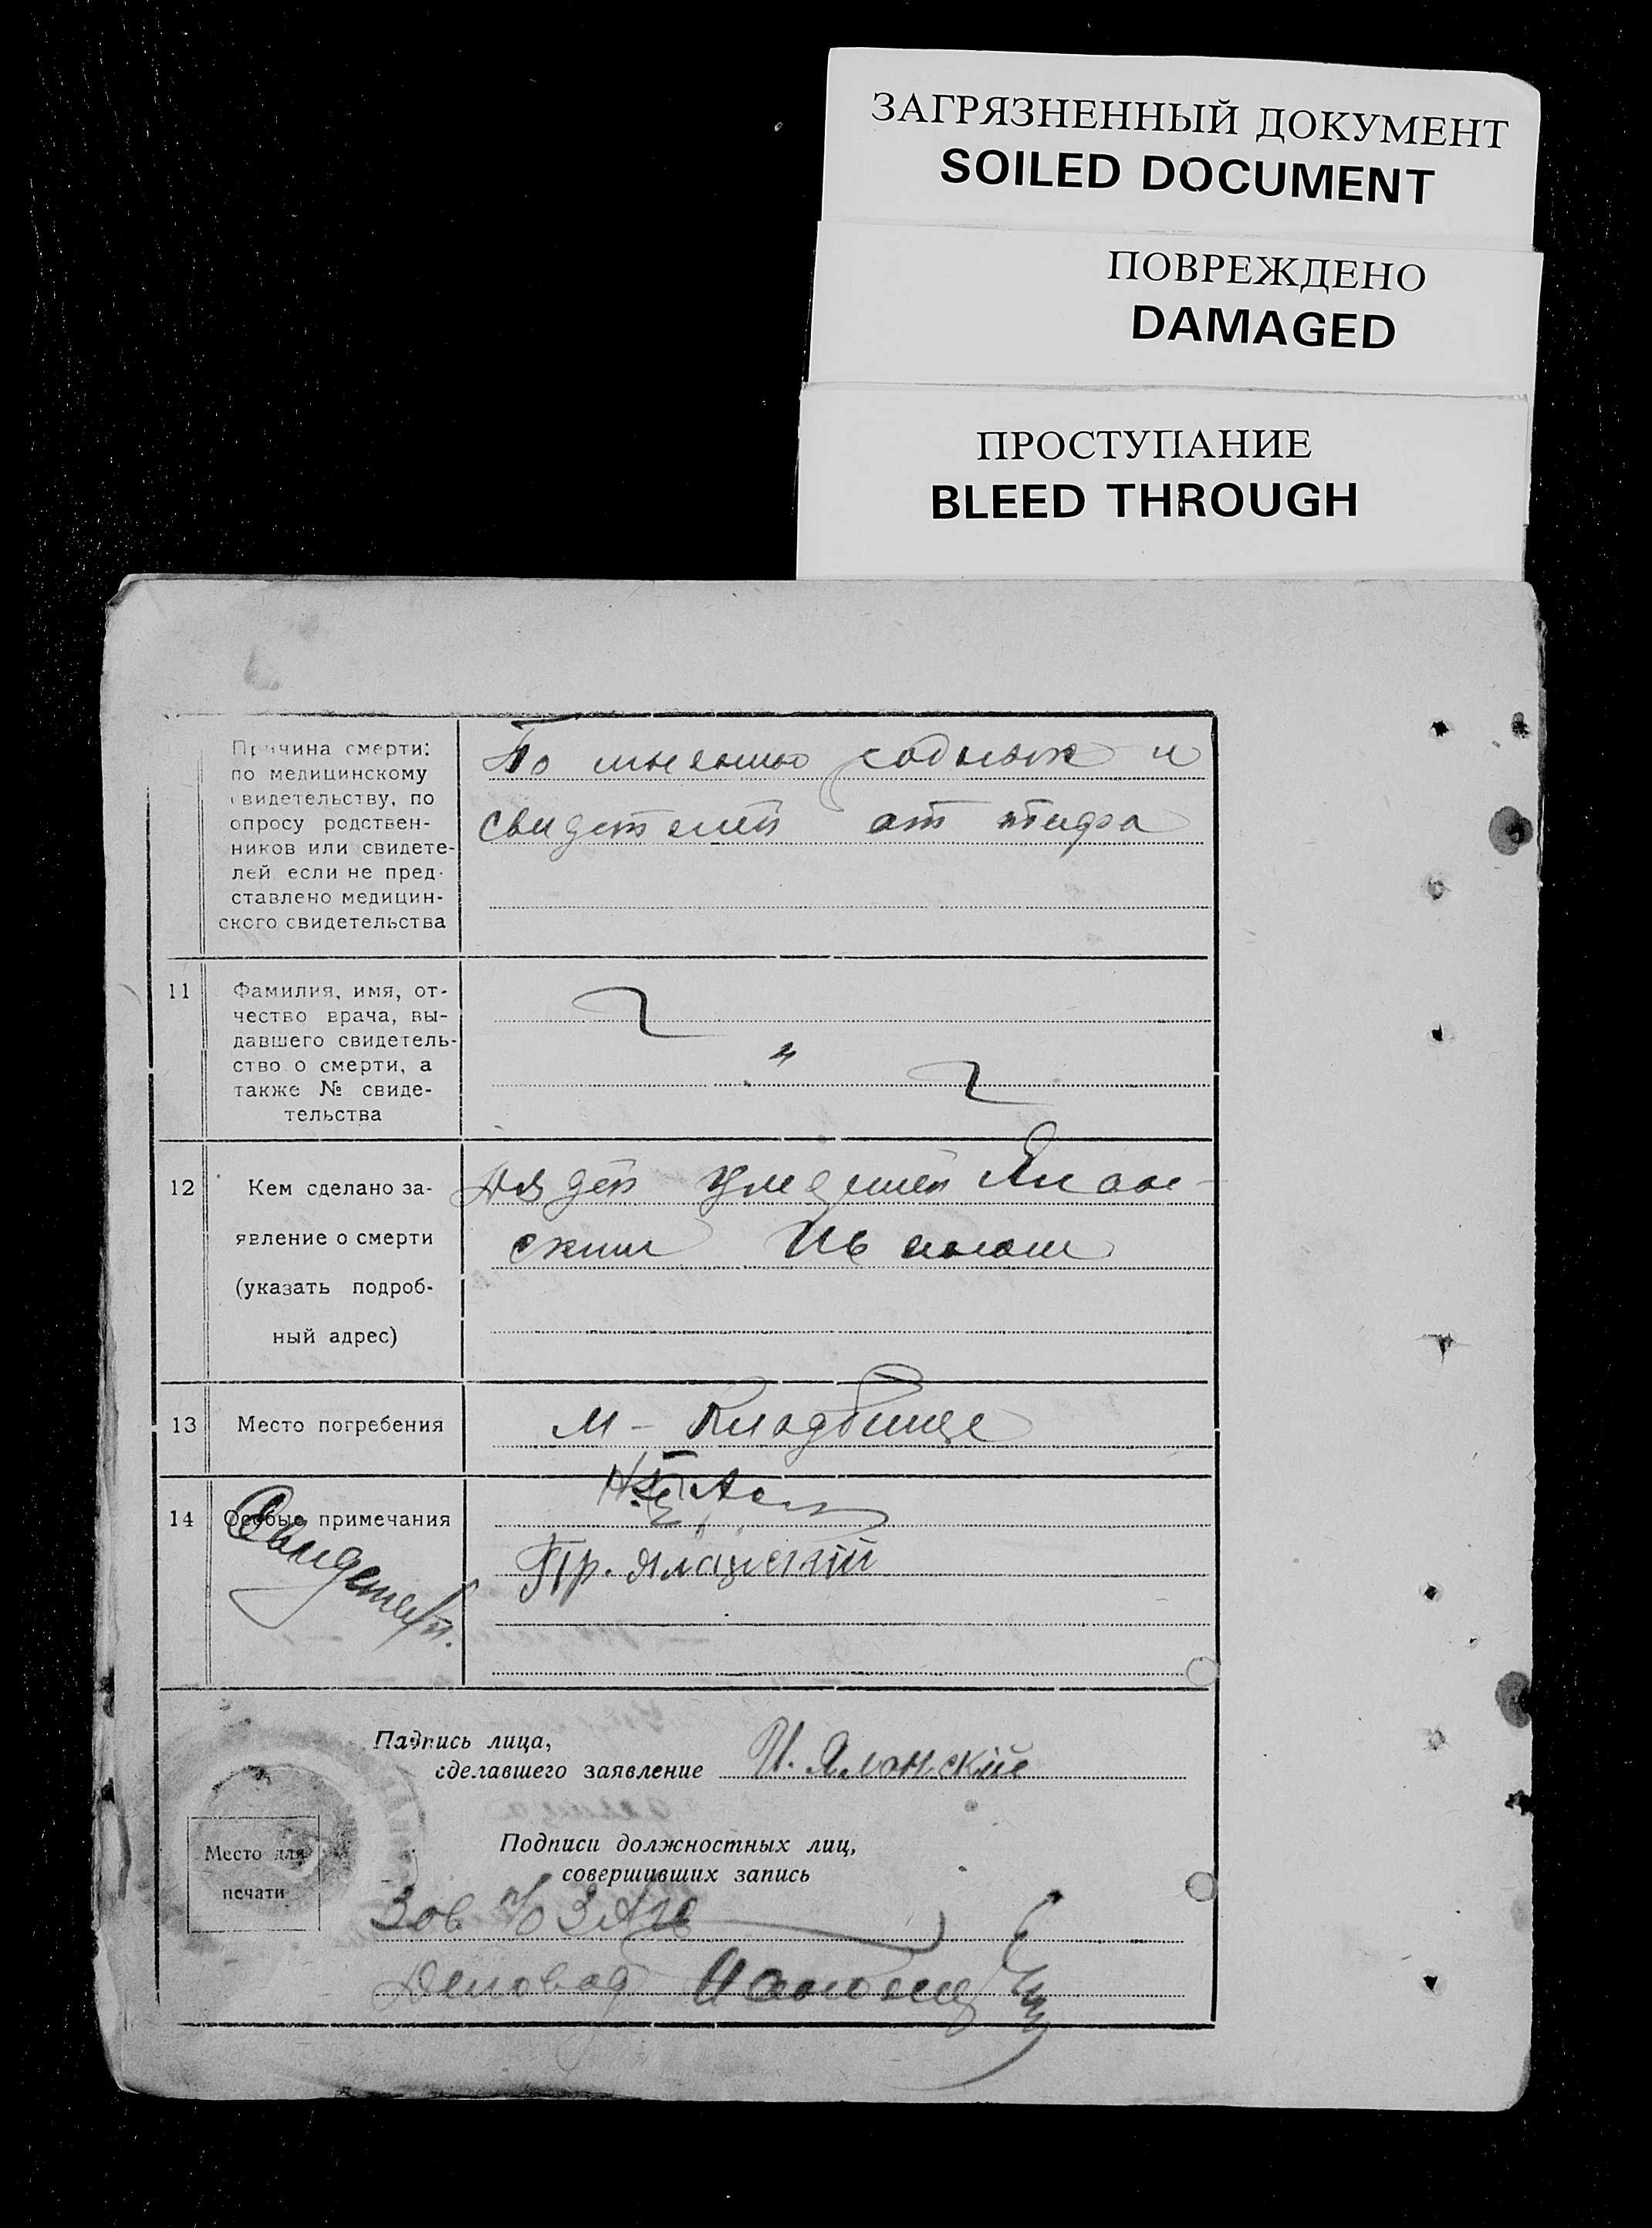 ЗАГРЯЗНЕННЫЙ ДОКУМЕНТ
SOILED DOCUMENT
ПОВРЕЖДЕНО
DAMAGED
ПРОСТУПАНИЕ
BLEED THROUGH
Причина смерти:
по медицинскому
свидетельству, по
опросу родствен-
ников или свидете-
лей если не пред-
ставлено медицин-
ского свидетельства
По мнению родных и
свидетелей от тифа
11
Фамилия, имя, от-
чество врача, вы-
давшего свидетель-
ство о смерти, а
также № свиде-
тельства
12
Кем сделано за-
явление о смерти
(указать подроб-
ный адрес)
Дядей умершей Ялан-
ским Иваном
13
Место погребения
М - Кладбище
14
Особые примечания
Свидетел.
Пр.
Подпись лица,
сделавшего заявление И. Яланскій
Подписи должностных лиц,
совершивших запись
Место для
печати
Зав. п/о ЗАГС
Деловод